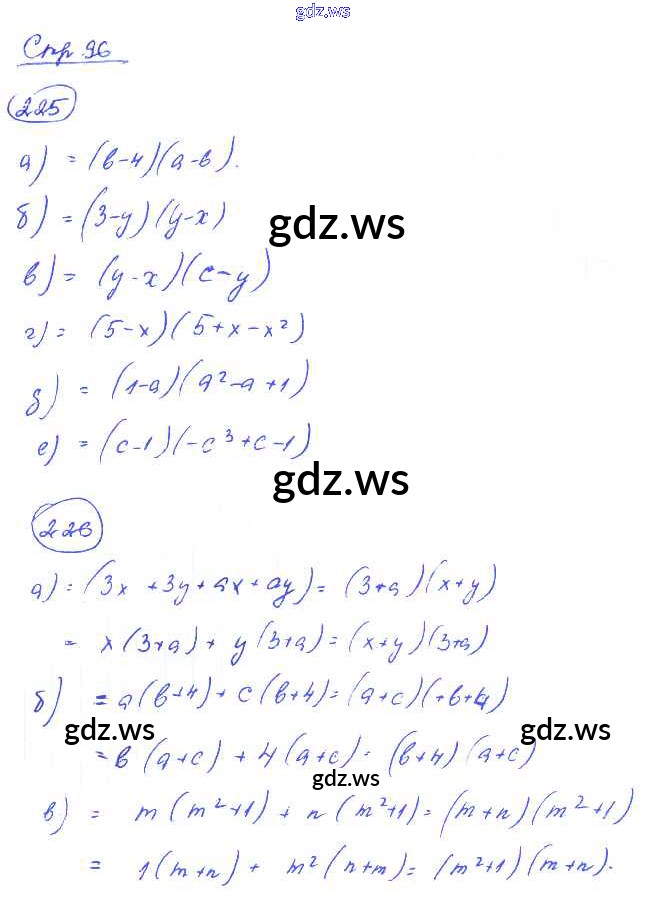 gdz.ws
Стр 96
225
а) = (в-4)(а-в).
б) = (3-y)(y-x)
gdz.ws
в) = (y-x)(c-y)
г) = (5-x)(5+x-x²)
д) = (1-a)(a²-a+1)
е) = (c-1)(-c³+c-1)
gdz.ws
226
а) = (3x+3y+ax+ay) = (3+a)(x+y)
= x(3+a) + y(3+a) = (x+y)(3+a)
б) = a(в+4) + c(в+4) = (a+c)(+в+4)
gdz.ws gdz.ws
= в(a+c) + 4(a+c) = (в+4)(a+c)
gdz.ws
в) = m(m²+1) + n(m²+1) = (m+n)(m²+1)
= 1(m+n) + m²(n+m) = (m²+1)(m+n).